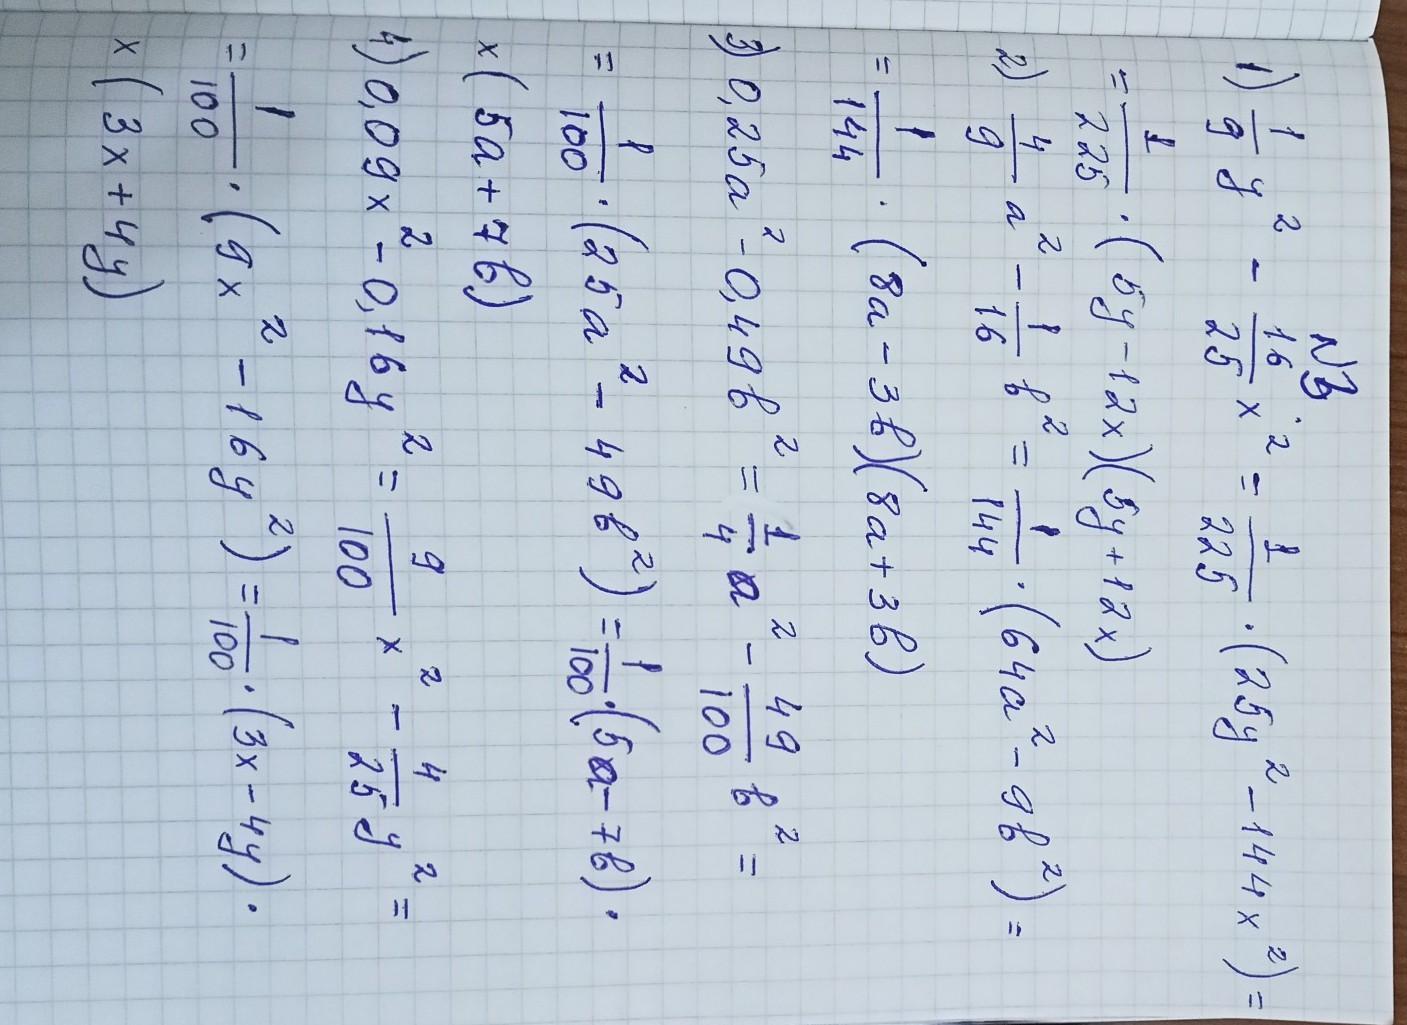 №3
1) 1/9 y² - 16/25 x² = 1/225 · (25y² - 144x²) =
= 1/225 · (5y - 12x)(5y + 12x)
2) 4/9 a² - 1/16 b² = 1/144 · (64a² - 9b²) =
= 1/144 · (8a - 3b)(8a + 3b)
3) 0,25a² - 0,49b² = 1/4 a² - 49/100 b² =
= 1/100 · (25a² - 49b²) = 1/100 · (5a - 7b) ·
x (5a + 7b)
4) 0,09x² - 0,16y² = 9/100 x² - 4/25 y² =
= 1/100 · (9x² - 16y²) = 1/100 · (3x - 4y) ·
x (3x + 4y)